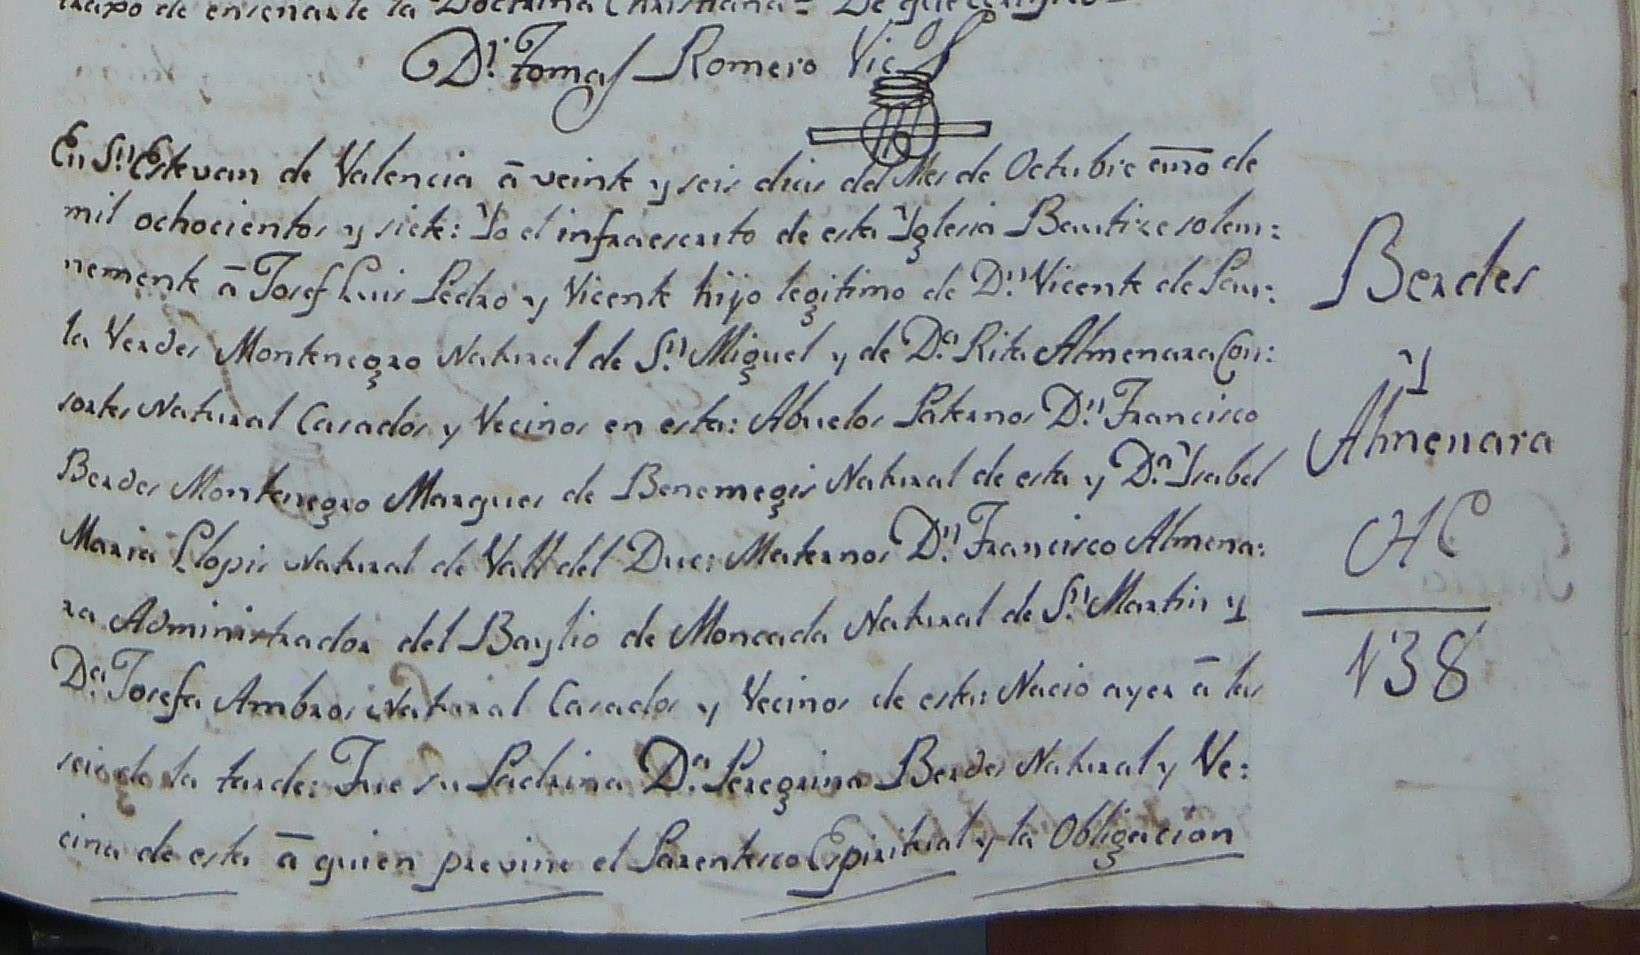 trapo de enseñarle la Doctrina Christiana = De que certifico =
Dr. Tomas Romero Vic.
En Sn. Estevan de Valencia â veinte y seis dias del Mes de Octubre de
mil ochocientos y siete: Yo el infraescrito de esta Yglesia Bautize solem:
nemente â Josef Luis Pedro y Vicente hijo legitimo de Dn. Vicente de Pau:
la Verdes Montenegro Natural de Sn. Miguel y de Da. Rita Almenara Con:
sortes Natural Casados y Vecinos en esta: Abuelos Paternos Dn. Francisco
Berdes Montenegro Marques de Benemegis Natural de esta y Da. Isabel
Maria Llopis Natural de Vall del Duc: Maternos Dn. Francisco Almena:
ra Administrador del Baylio de Moncada Natural de Sn. Martin y
Da. Josefa Ambros Natural Casados y Vecinos de esta: Nacio ayer â las
seis de la tarde: Fue su Padrina Da. Peregrina Berdes Natural y Ve:
cina de esta â quien previne el Parentesco Espiritual y la Obligacion
Berdes
Y
Almenara
138